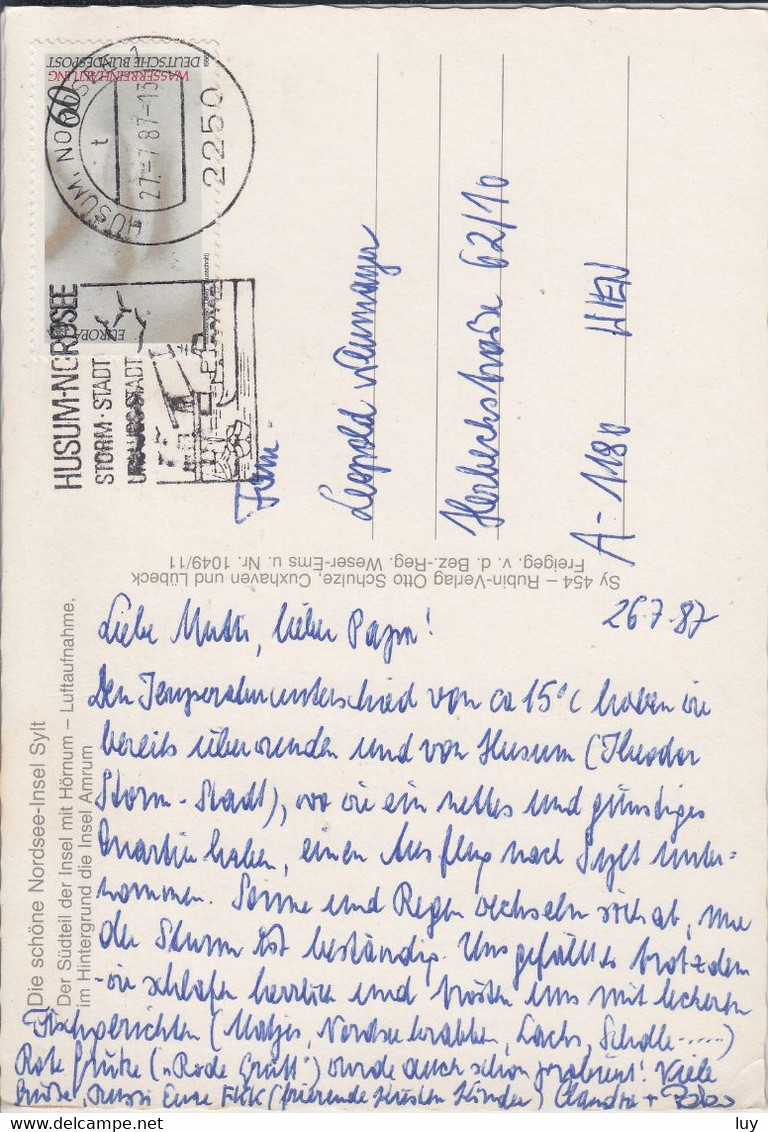 DEUTSCHE BUNDESPOST
WASSERREINHALTUNG
60
EUROPA
HUSUM, NORDSEE 1
27.-7.87-13
t
2250
HUSUM-NORDSEE
STORM·STADT
URLAUBSSTADT
Fam.
Leopold Neumayer
Herbeckstraße 62/10
A-1180 WIEN
Sy 454 – Rubin-Verlag Otto Schulze, Cuxhaven und Lübeck
Freigeg. v. d. Bez.-Reg. Weser-Ems u. Nr. 1049/11
Die schöne Nordsee-Insel Sylt
Der Südteil der Insel mit Hörnum – Luftaufnahme,
im Hintergrund die Insel Amrum
26.7.87
Liebe Mutti, lieber Papa!
Den Temperaturunterschied von ca 15°C haben wir
bereits überwunden und von Husum (Theodor
Storm-Stadt), wo wir ein nettes und günstiges
Quartier haben, einen Ausflug nach Sylt unter-
nommen. Sonne und Regen wechseln sich ab, nur
der Sturm ist beständig. Uns gefällt es trotzdem
wir schlafen herrlich und trösten uns mit leckeren
Fischgerichten (Matjes, Nordseekrabben, Lachs, Scholle......)
Rote Grütze („Rode Grütt") wurde auch schon probiert! Viele
Grüße, Bussi Eure FKK (frierende Küsten Kinder) Claudia +
luy